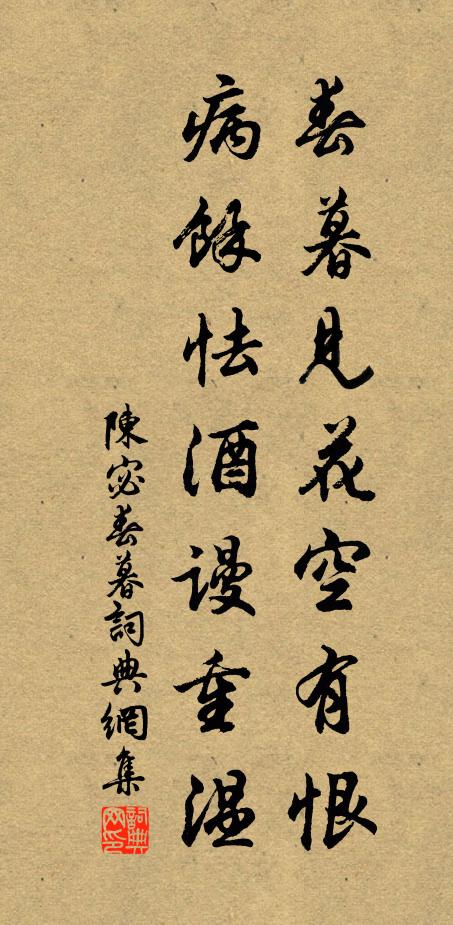 春暮見花空有恨
病餘怯酒謾重溫
陳宓春暮詞典網集
詞典網印